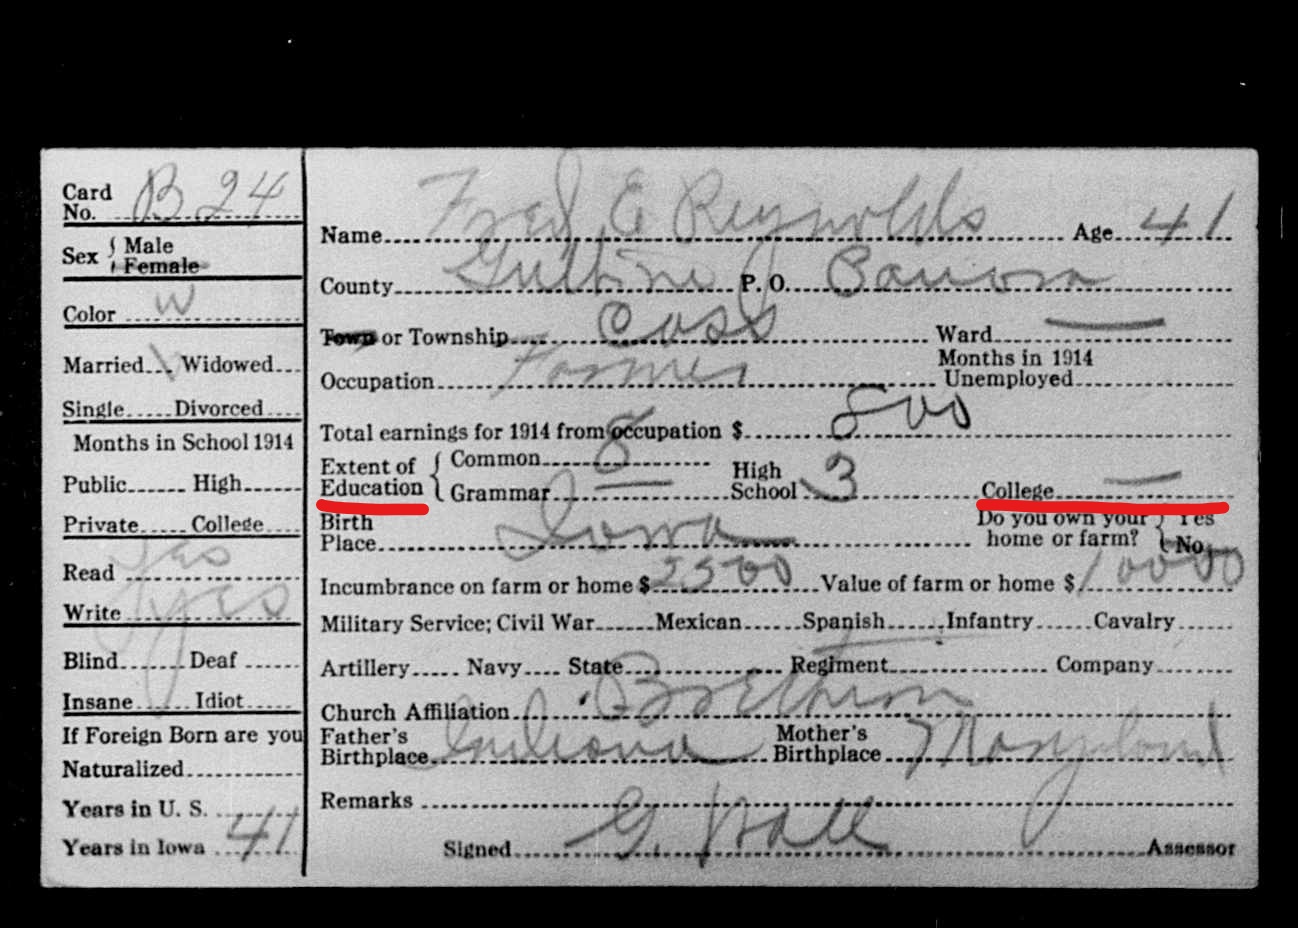 Card No. B 24
Sex { Male
Female
Color W
Married Widowed
Single Divorced
Months in School 1914
Public High
Private College
Read Yes
Write yes
Blind Deaf
Insane Idiot
If Foreign Born are you
Naturalized
Years in U. S.
Years in Iowa 41
Name Fred E Reynolds Age 41
County Guthrie P. O.
Town or Township Cass Ward —
Occupation Farmer Months in 1914 Unemployed
Total earnings for 1914 from occupation $ 800
Extent of Education { Common 8
Grammar — High School 3 College —
Birth Place Iowa Do you own your home or farm? { Yes No
Incumbrance on farm or home $ 2500 Value of farm or home $ 10000
Military Service; Civil War Mexican Spanish Infantry Cavalry
Artillery Navy State Regiment Company
Church Affiliation
Father's Birthplace Indiana Mother's Birthplace Maryland
Remarks
Signed G. Hall Assessor